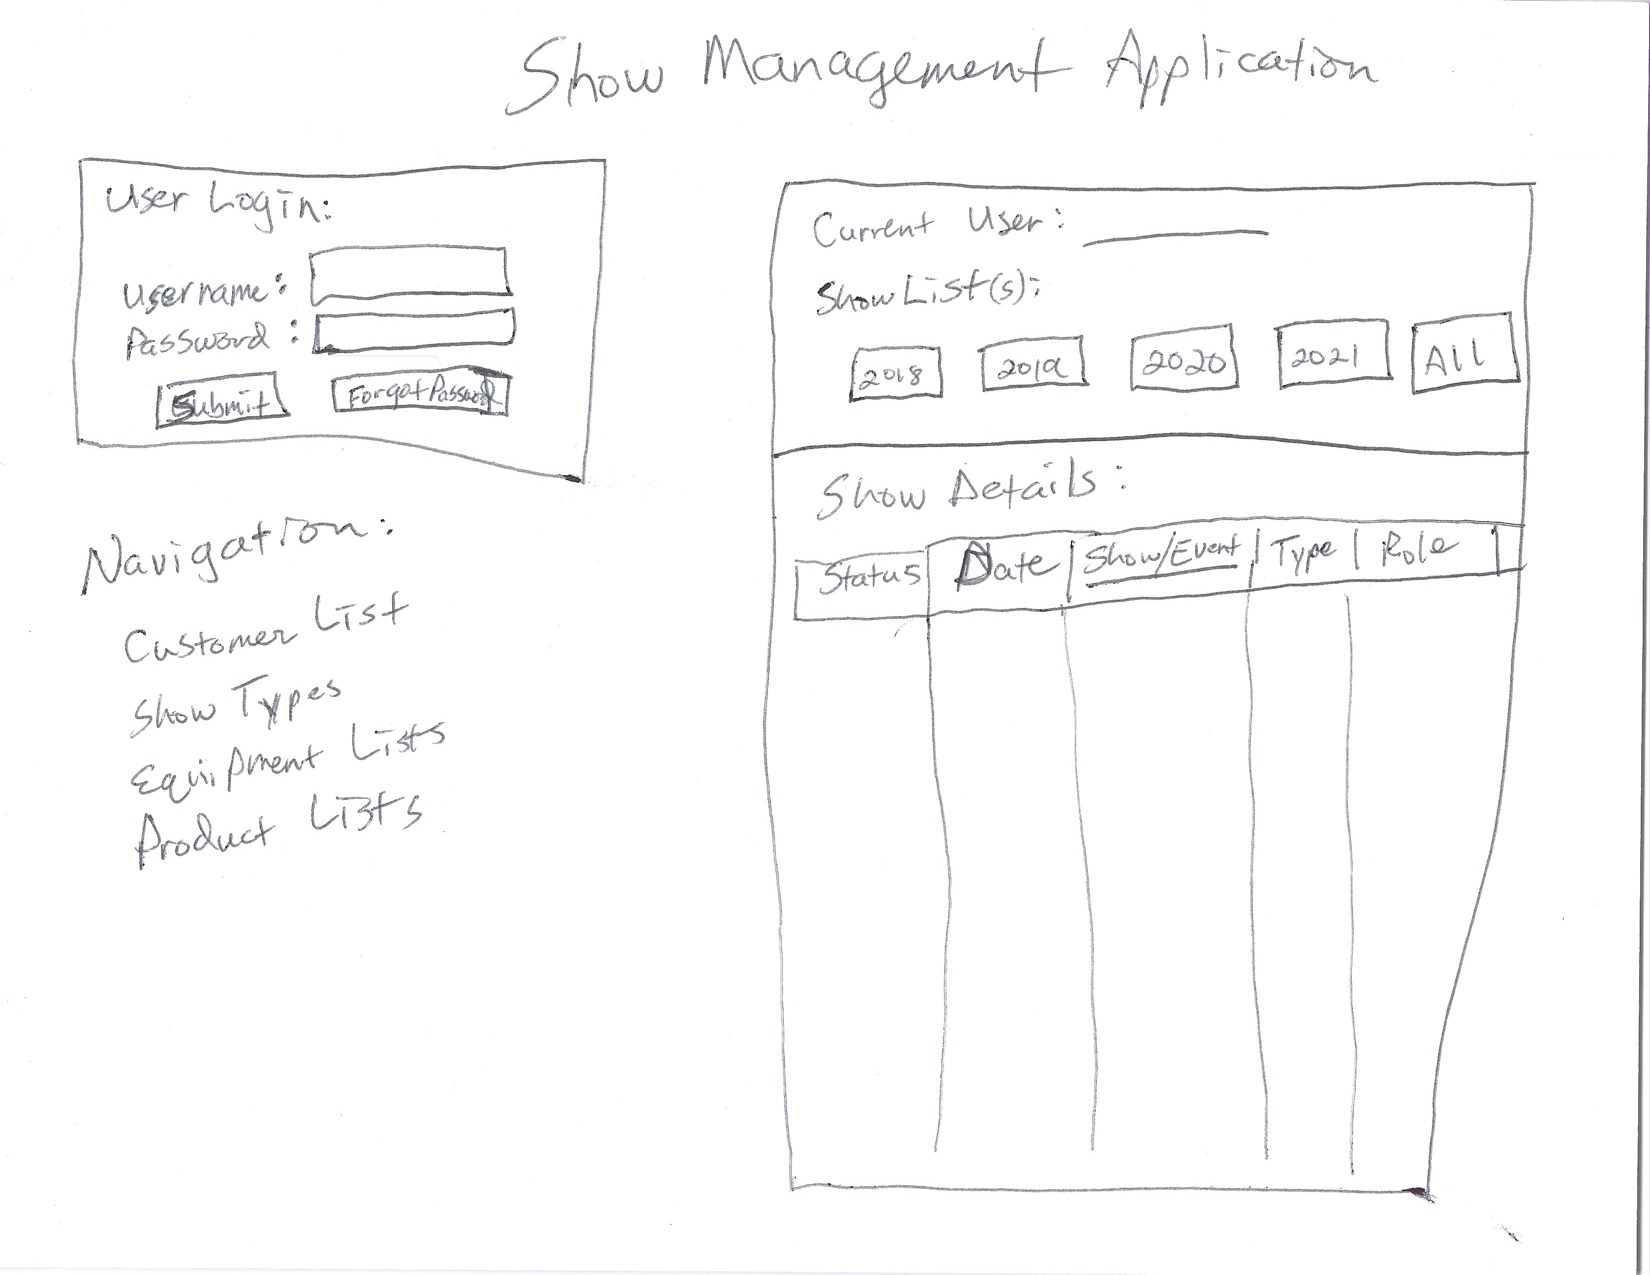 Show Management Application
User Login:
Username:
Password:
Submit
Forgot Password
Navigation:
Customer List
Show Types
Equipment Lists
Product Lists
Current User:
Show List(s):
2018
2019
2020
2021
All
Show Details:
Status
Date
Show/Event
Type
Role